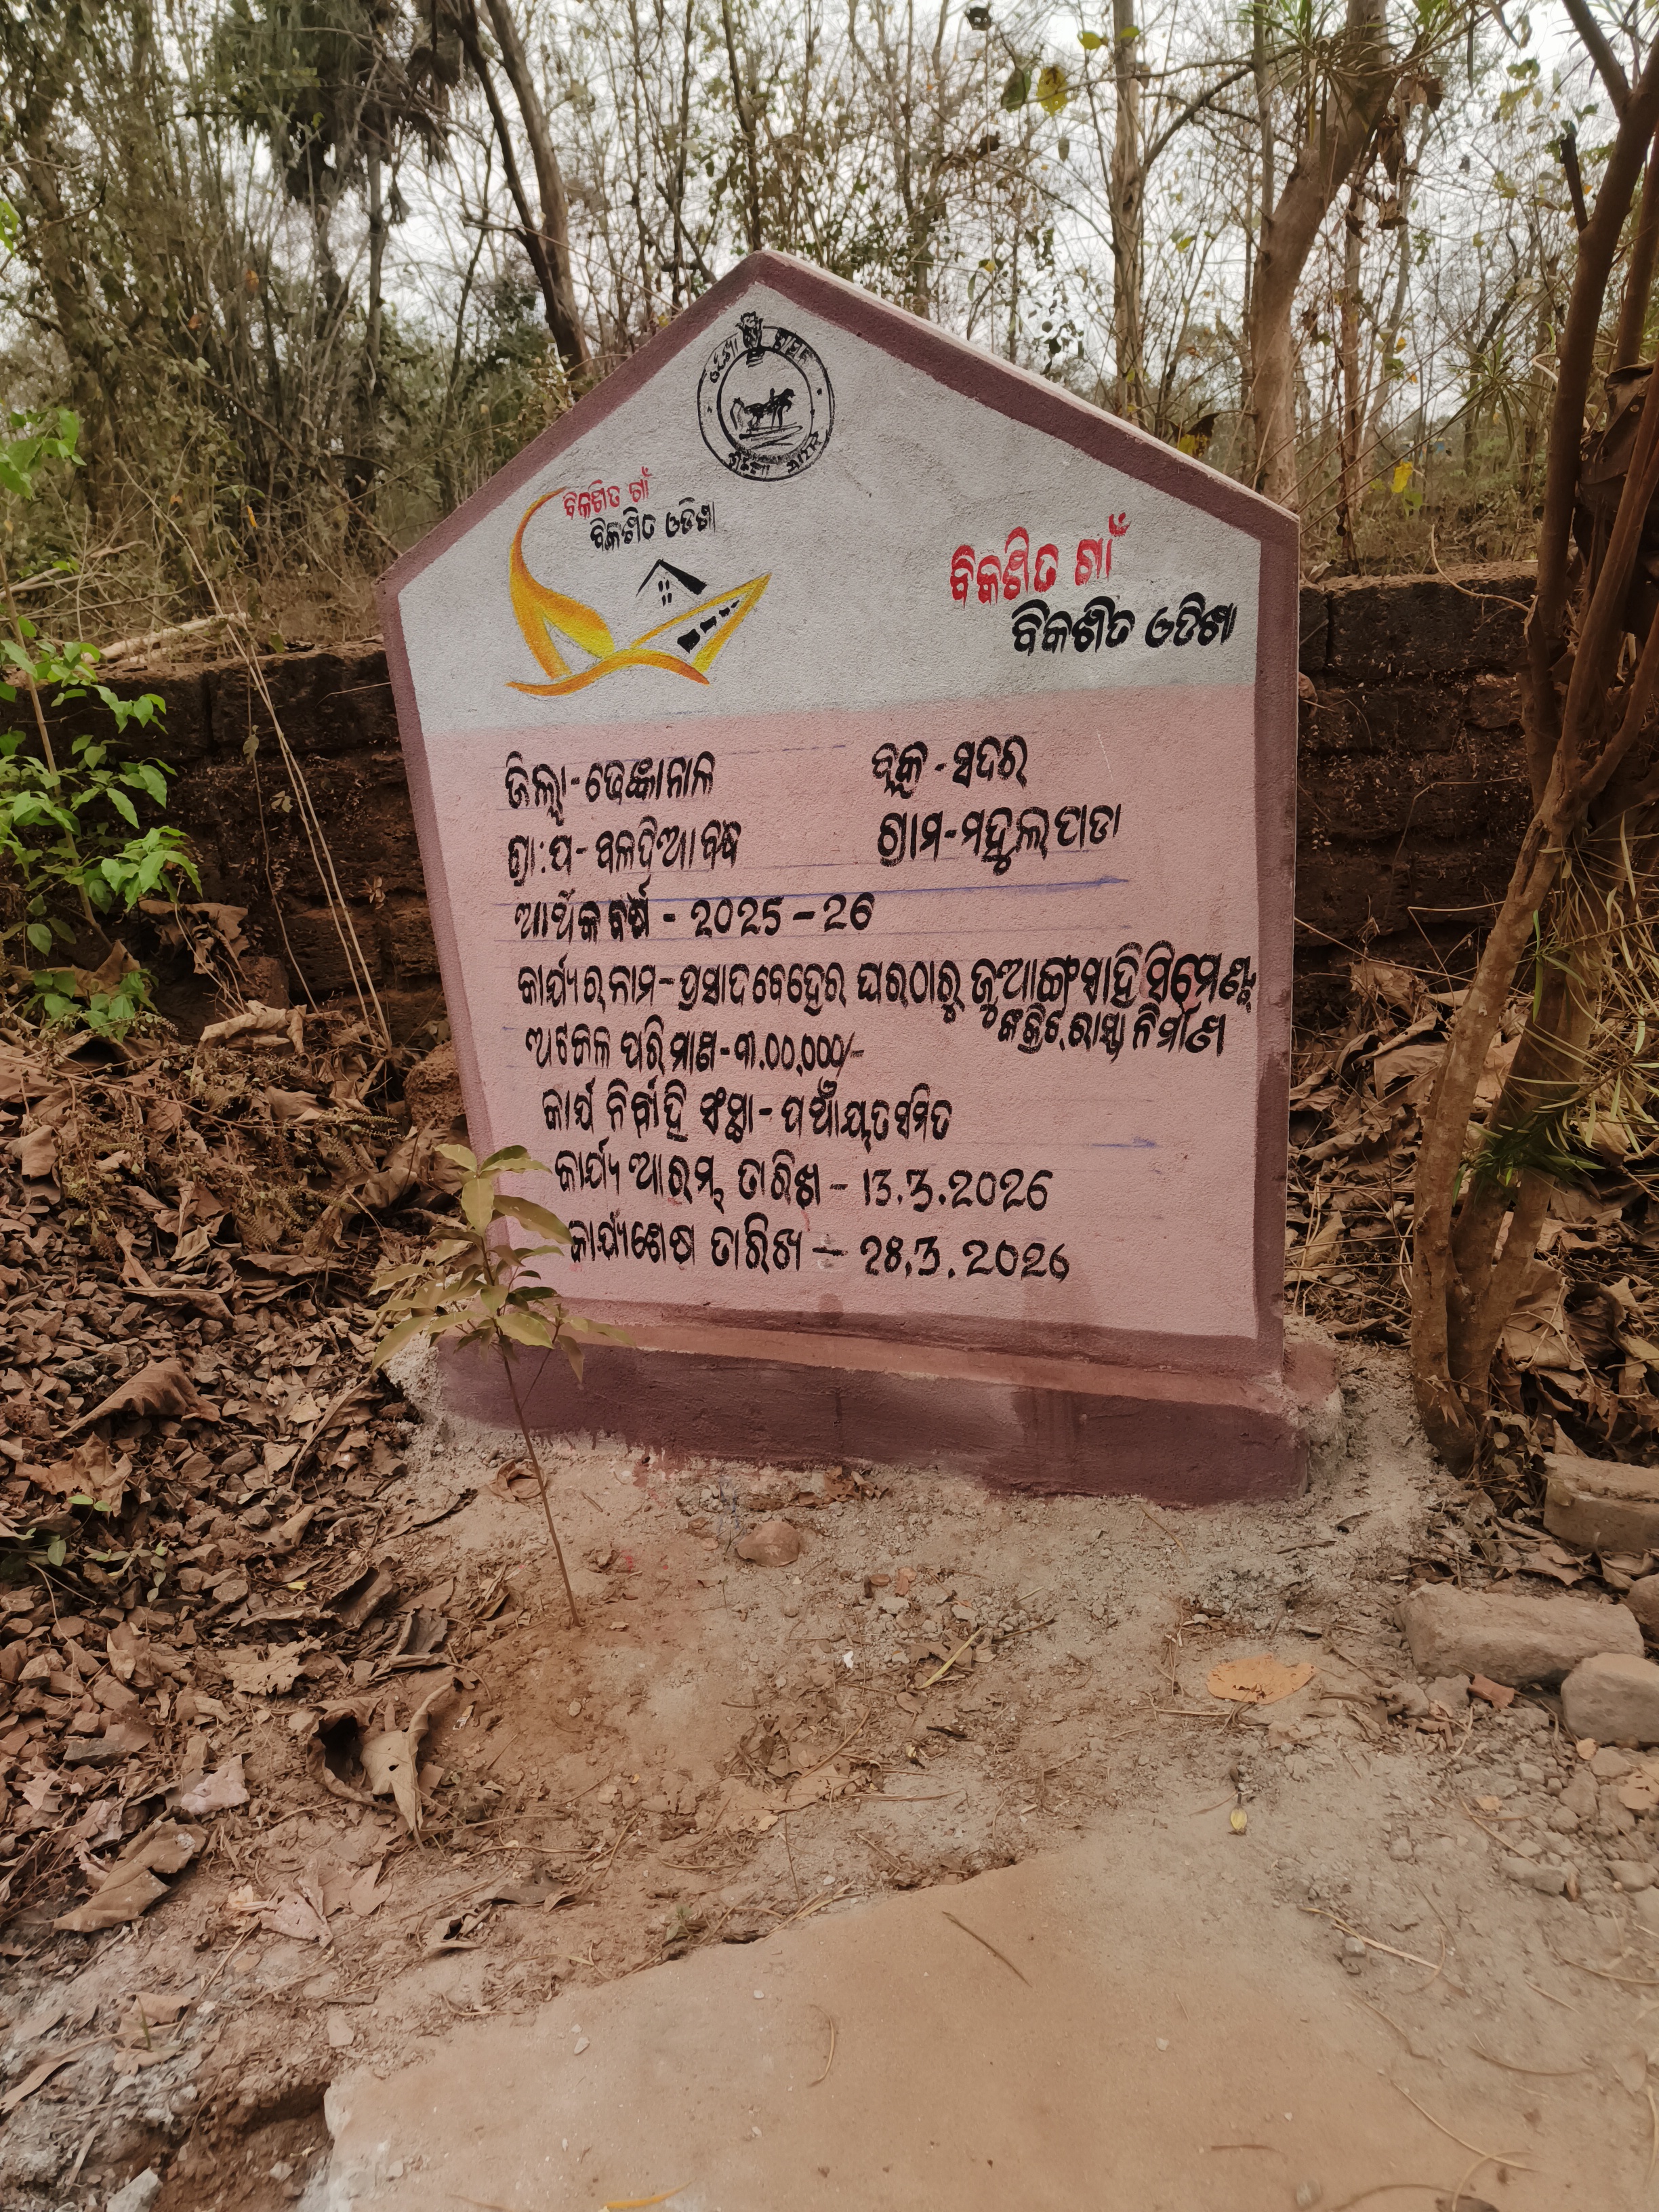 ଓଡ଼ିଶା ଶାସନ
ବିକଶିତ ଗାଁ
ବିକଶିତ ଓଡିଶା
ବିକଶିତ ଗାଁ
ବିକଶିତ ଓଡିଶା
ଜିଲ୍ଲା-ଢେଙ୍କାନାଳ ବ୍ଲକ-ସଦର
ଗ୍ରା:ପ-ବଳଦିଆବନ୍ଧ ଗ୍ରାମ-ମହୁଲପାଡା
ଆର୍ଥିକ ବର୍ଷ - ୨୦25 - 26
କାର୍ଯ୍ୟର ନାମ-ପ୍ରସାଦ ବେହେରା ଘରଠାରୁ ଜୁଆଙ୍ଗ ସାହି ସିମେଣ୍ଟ
କଂକ୍ରିଟ୍ ରାସ୍ତା ନିର୍ମାଣ
ଅଟକଳ ପରିମାଣ-୩.00,000/-
କାର୍ଯ ନିର୍ବାହି ସଂସ୍ଥା- ପଞ୍ଚାୟତ ସମିତି
କାର୍ଯ୍ୟ ଆରମ୍ଭ ତାରିଖ - 13.3.2026
କାର୍ଯ୍ୟ ଶେଷ ତାରିଖ - 28.3.2026